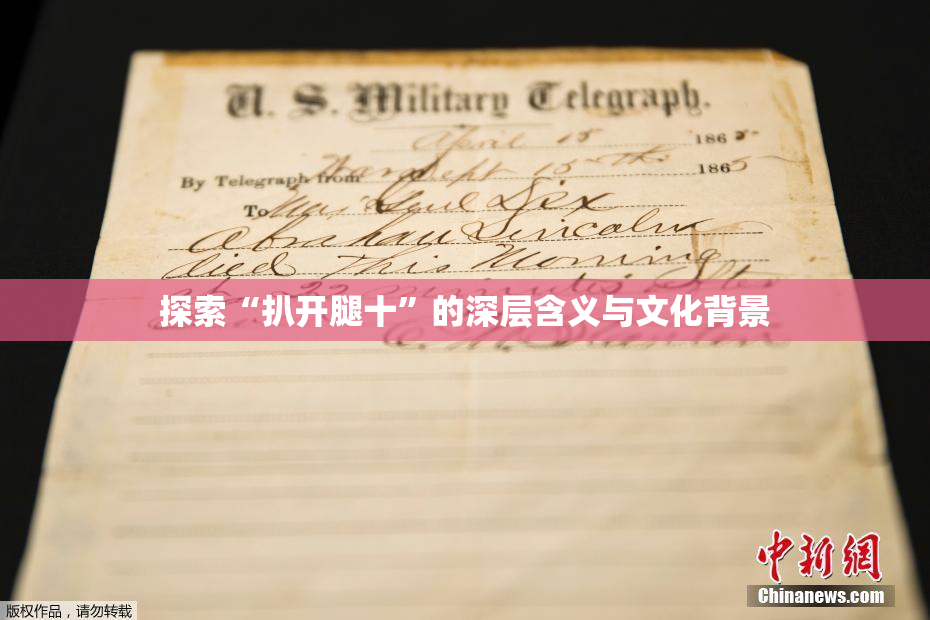 U. S. Military Telegraph.
April 15 1865
By Telegraph from War Dept 15th 1865
To Maj Genl Dix
Abraham Lincoln
died This Morning
at 22 minutes after
探索“扒开腿十”的深层含义与文化背景
E. M. Stanton
中新网
Chinanews.com
版权作品,请勿转载